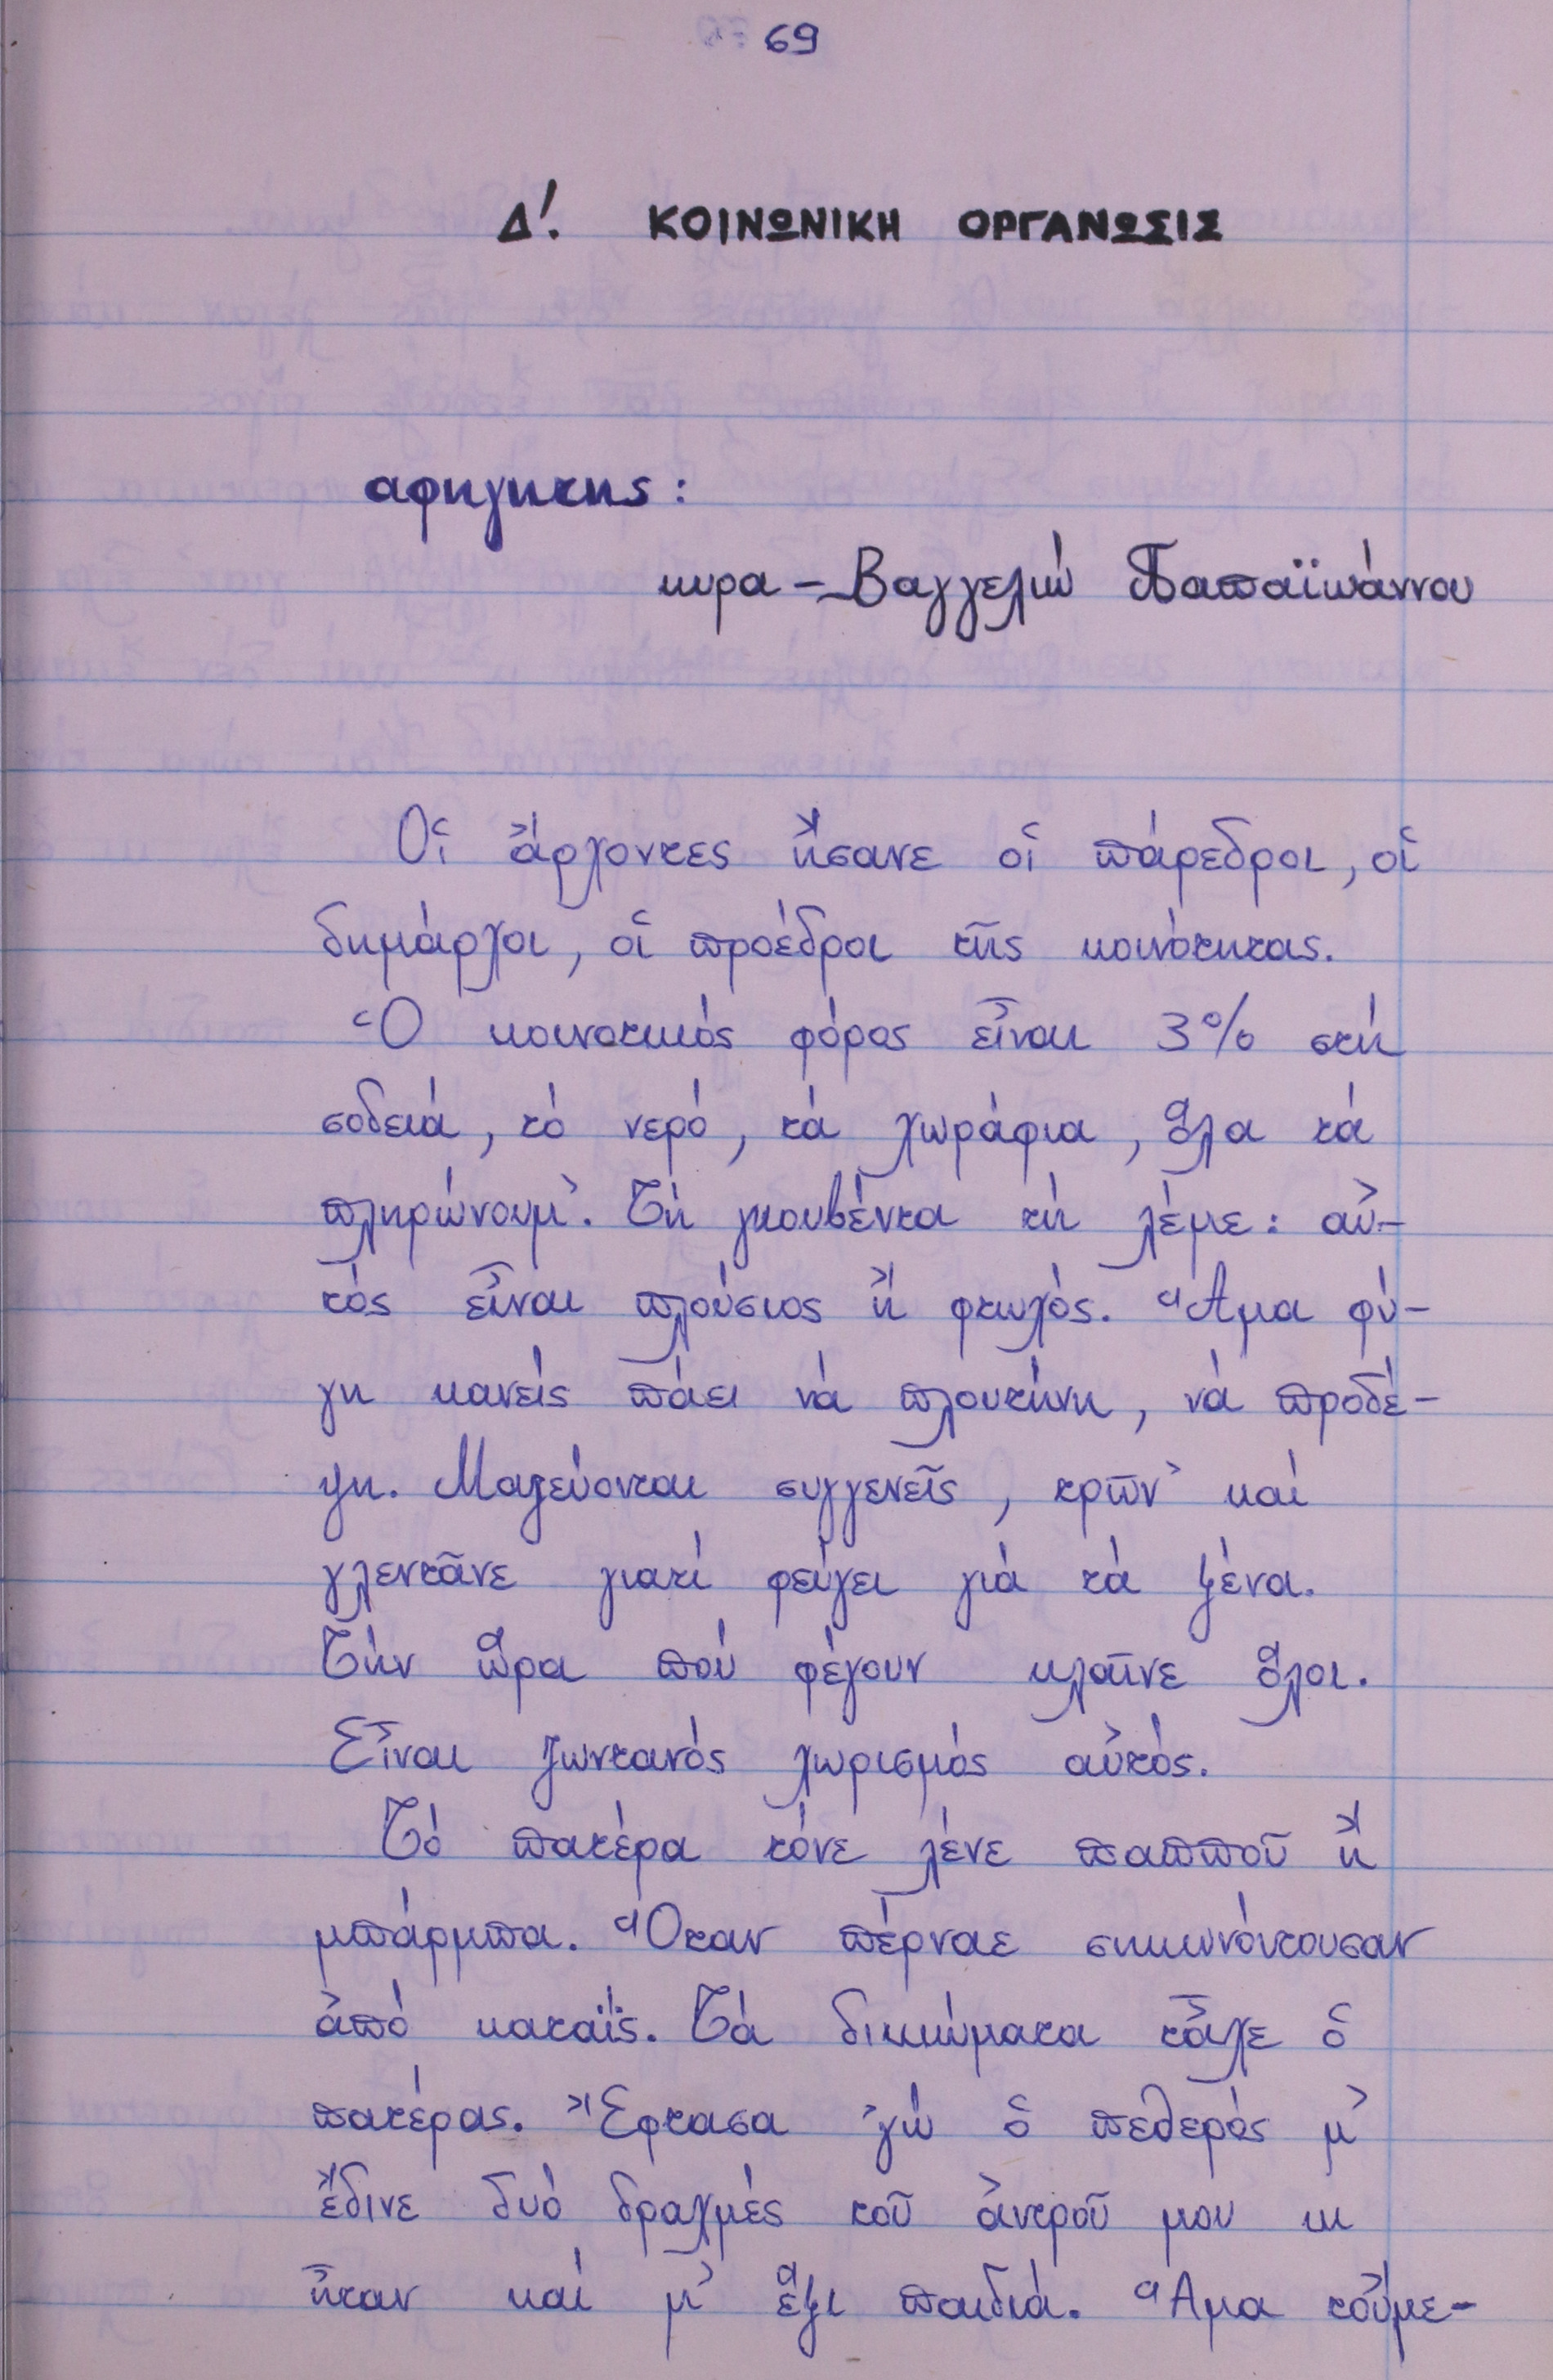 69
Δ'. ΚΟΙΝΩΝΙΚΗ ΟΡΓΑΝΩΣΙΣ
αφηγητης:
κυρα-Βαγγελιώ Παπαϊωάννου
Οἱ ἄρχοντες ἤσανε οἱ πάρεδροι, οἱ
δημάρχοι, οἱ προέδροι τῆς κοινότητας.
Ὁ κοινοτικός φόρος εἶναι 3% στή
σοδειά, τό νερό, τά χωράφια, ὅλα τά
πληρώνουμ'. Τή γκουβέντα τή λέμε: αὐ-
τός εἶναι πλούσιος ἤ φτωχός. Ἅμα φύ-
γη κανείς πάει νά πλουτήνη, νά προδέ-
ψη. Μαζεύονται συγγενεῖς, τρῶν' καί
γλεντᾶνε γιατί φεύγει γιά τά ξένα.
Τήν ὥρα πού φέγουν κλαῖνε ὅλοι.
Εἶναι ζωντανός χωρισμός αὐτός.
Τό πατέρα τόνε λένε παπποῦ ἤ
μπάρμπα. Ὅταν πέρναε σηκωνόντουσαν
ἀπό καταΐς. Τά δικιώματα τἆχε ὁ
πατέρας. Ἔφτασα 'γώ ὁ πεθερός μ'
ἔδινε δυό δραχμές τοῦ ἀντροῦ μου κι
ἦταν καί μ' ἕξι παιδιά. Ἅμα τοὔμε-